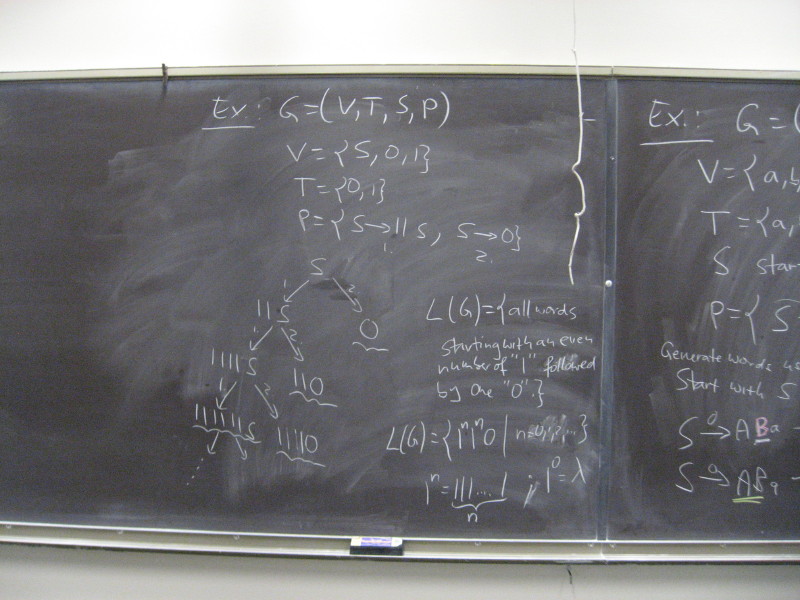 Ex.: G=(V,T,S,P)
V={S,0,1}
T={0,1}
P={S→11S, S→0}
1. 2.
S
1 2
11S 0
1 2
1111S 110
1 2
111111S 11110
L(G)={all words
starting with an even
number of "1" followed
by one "0".}
L(G)={1ⁿ1ⁿ0 | n=0,1,2,...}
1ⁿ=111....1 ; 1⁰=λ
n
Ex.: G=(
V={a,b
T={a,
S star
P={S
Generate words
Start with S
S→ABa
S→ABa